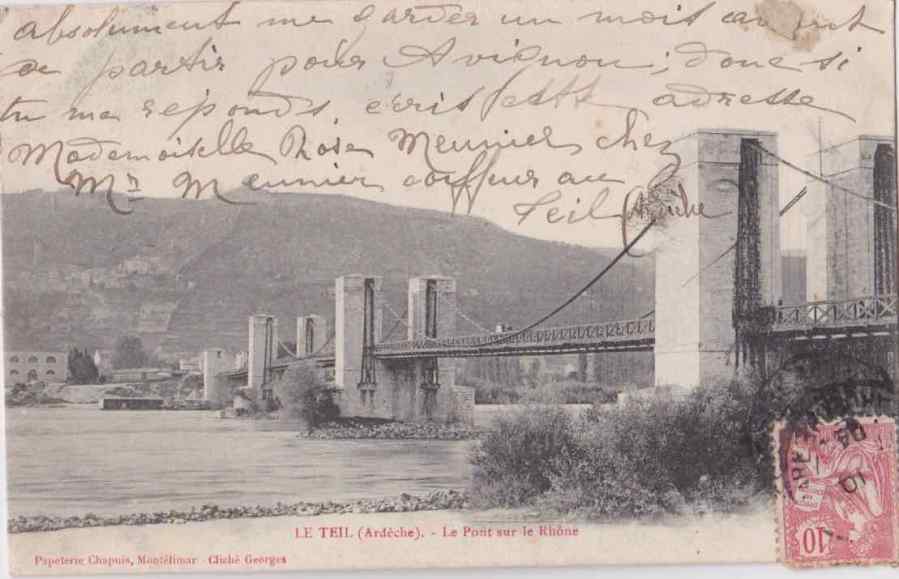 absolument me garder un mois avant
de partir pour Avignon ; donc si
tu me réponds, écris cette adresse
Mademoiselle Rose Meunier chez
Mr Meunier coiffeur au
Teil (Ardèche)
LE TEIL (Ardèche). - Le Pont sur le Rhône
Papeterie Chapuis, Montélimar - Cliché Georges
10